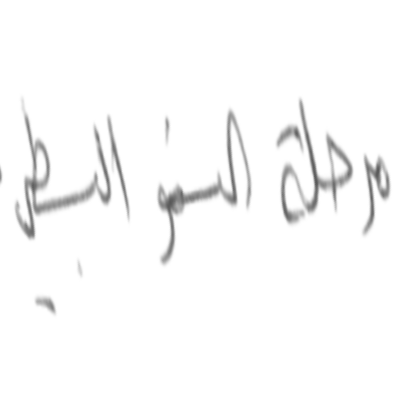 مرحلة النمو البطئ